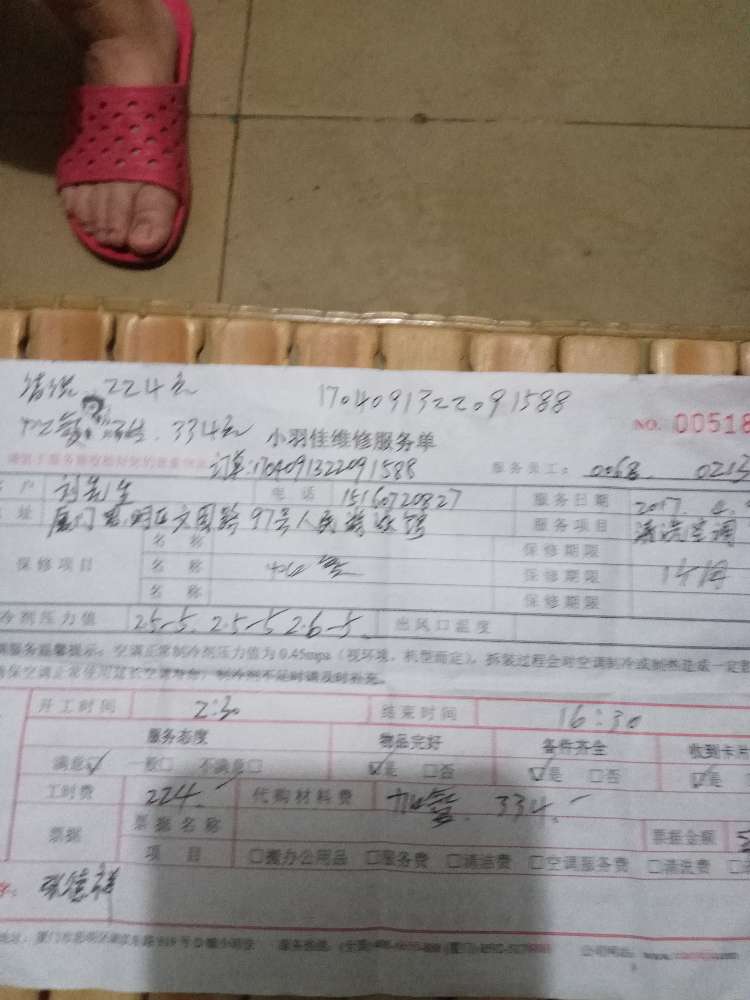 清洗 224元
1704091322091588
加氨 334元
小羽佳维修服务单
NO. 00518
订单:1704091322091588
服务员工: 0068. 0213
户 刘先生 电话 15160720827 服务日期 2017.4.
址 厦门 思明区文园路97号人民 服务项目 清洗空调
名称 保修期限
保修项目 名称 加 保修期限 1个月
名称 保修期限
冷剂压力值 25-5. 2.5-5 2.6-5. 出风口温度
调服务温馨提示:空调正常制冷剂压力值为0.45mpa(视环境、机型而定),拆装过程会对空调制冷或制热造成一定
确保空调正常使用延长空调寿命,制冷剂不足时请及时补充。
开工时间 2:30 结束时间 16:30
服务态度 物品完好 备件齐全 收到卡片
满意☑ 一般□ 不满意□ ☑是 □否 ☑是 □否 ☑是
工时费 224. 代购材料费 加 334.
票据 票据名称 票据金额
项目 □办公用品 □服务费 □清洁费 □空调服务费 □清洗费
张德祥